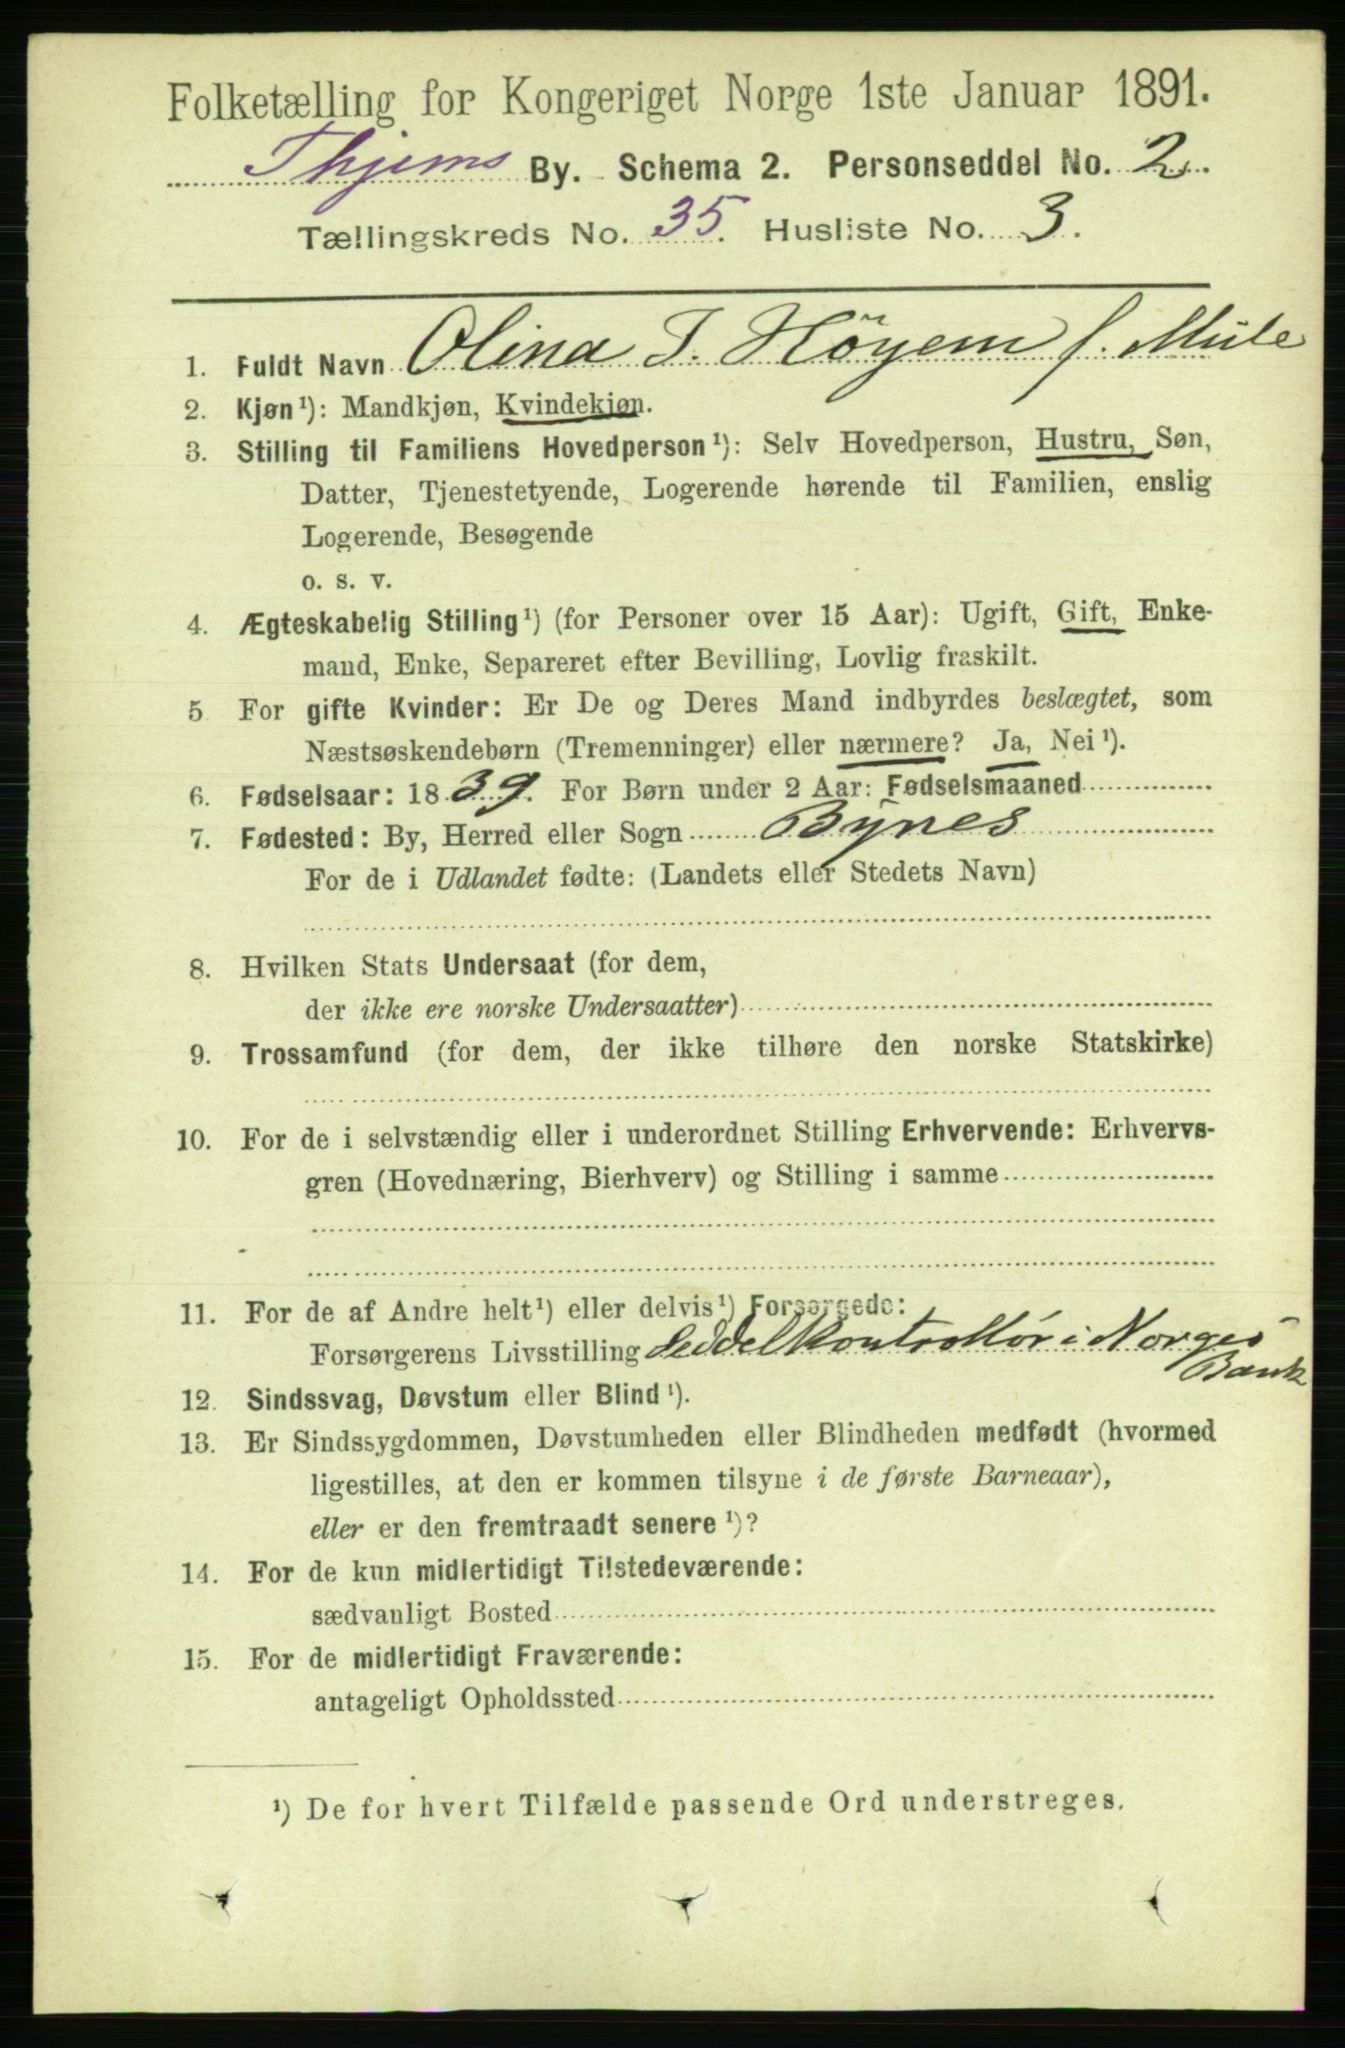 Folketælling for Kongeriget Norge 1ste Januar 1891.
Thjems By. Schema 2. Personseddel No. 2.
Tællingskreds No. 35. Husliste No. 3.
1. Fuldt Navn Olina T. Höyem f. Mule
2. Kjøn¹): Mandkjøn, Kvindekjøn.
3. Stilling til Familiens Hovedperson¹): Selv Hovedperson, Hustru, Søn,
Datter, Tjenestetyende, Logerende hørende til Familien, enslig
Logerende, Besøgende
o. s. v.
4. Ægteskabelig Stilling¹) (for Personer over 15 Aar): Ugift, Gift, Enke-
mand, Enke, Separeret efter Bevilling, Lovlig fraskilt.
5 For gifte Kvinder: Er De og Deres Mand indbyrdes beslægtet, som
Næstsøskendebørn (Tremenninger) eller nærmere? Ja, Nei¹).
6. Fødselsaar: 1839. For Børn under 2 Aar: Fødselsmaaned
7. Fødested: By, Herred eller Sogn Bynes
For de i Udlandet fødte: (Landets eller Stedets Navn)
8. Hvilken Stats Undersaat (for dem,
der ikke ere norske Undersaatter)
9. Trossamfund (for dem, der ikke tilhøre den norske Statskirke)
10. For de i selvstændig eller i underordnet Stilling Erhvervende: Erhvervs-
gren (Hovednæring, Bierhverv) og Stilling i samme
11. For de af Andre helt¹) eller delvis¹) Forsørgede:
Forsørgerens Livsstilling Seddelkontrollör i Norges
Bank
12. Sindssvag, Døvstum eller Blind¹).
13. Er Sindssygdommen, Døvstumheden eller Blindheden medfødt (hvormed
ligestilles, at den er kommen tilsyne i de første Barneaar),
eller er den fremtraadt senere¹)?
14. For de kun midlertidigt Tilstedeværende:
sædvanligt Bosted
15. For de midlertidigt Fraværende:
antageligt Opholdssted
¹) De for hvert Tilfælde passende Ord understreges.